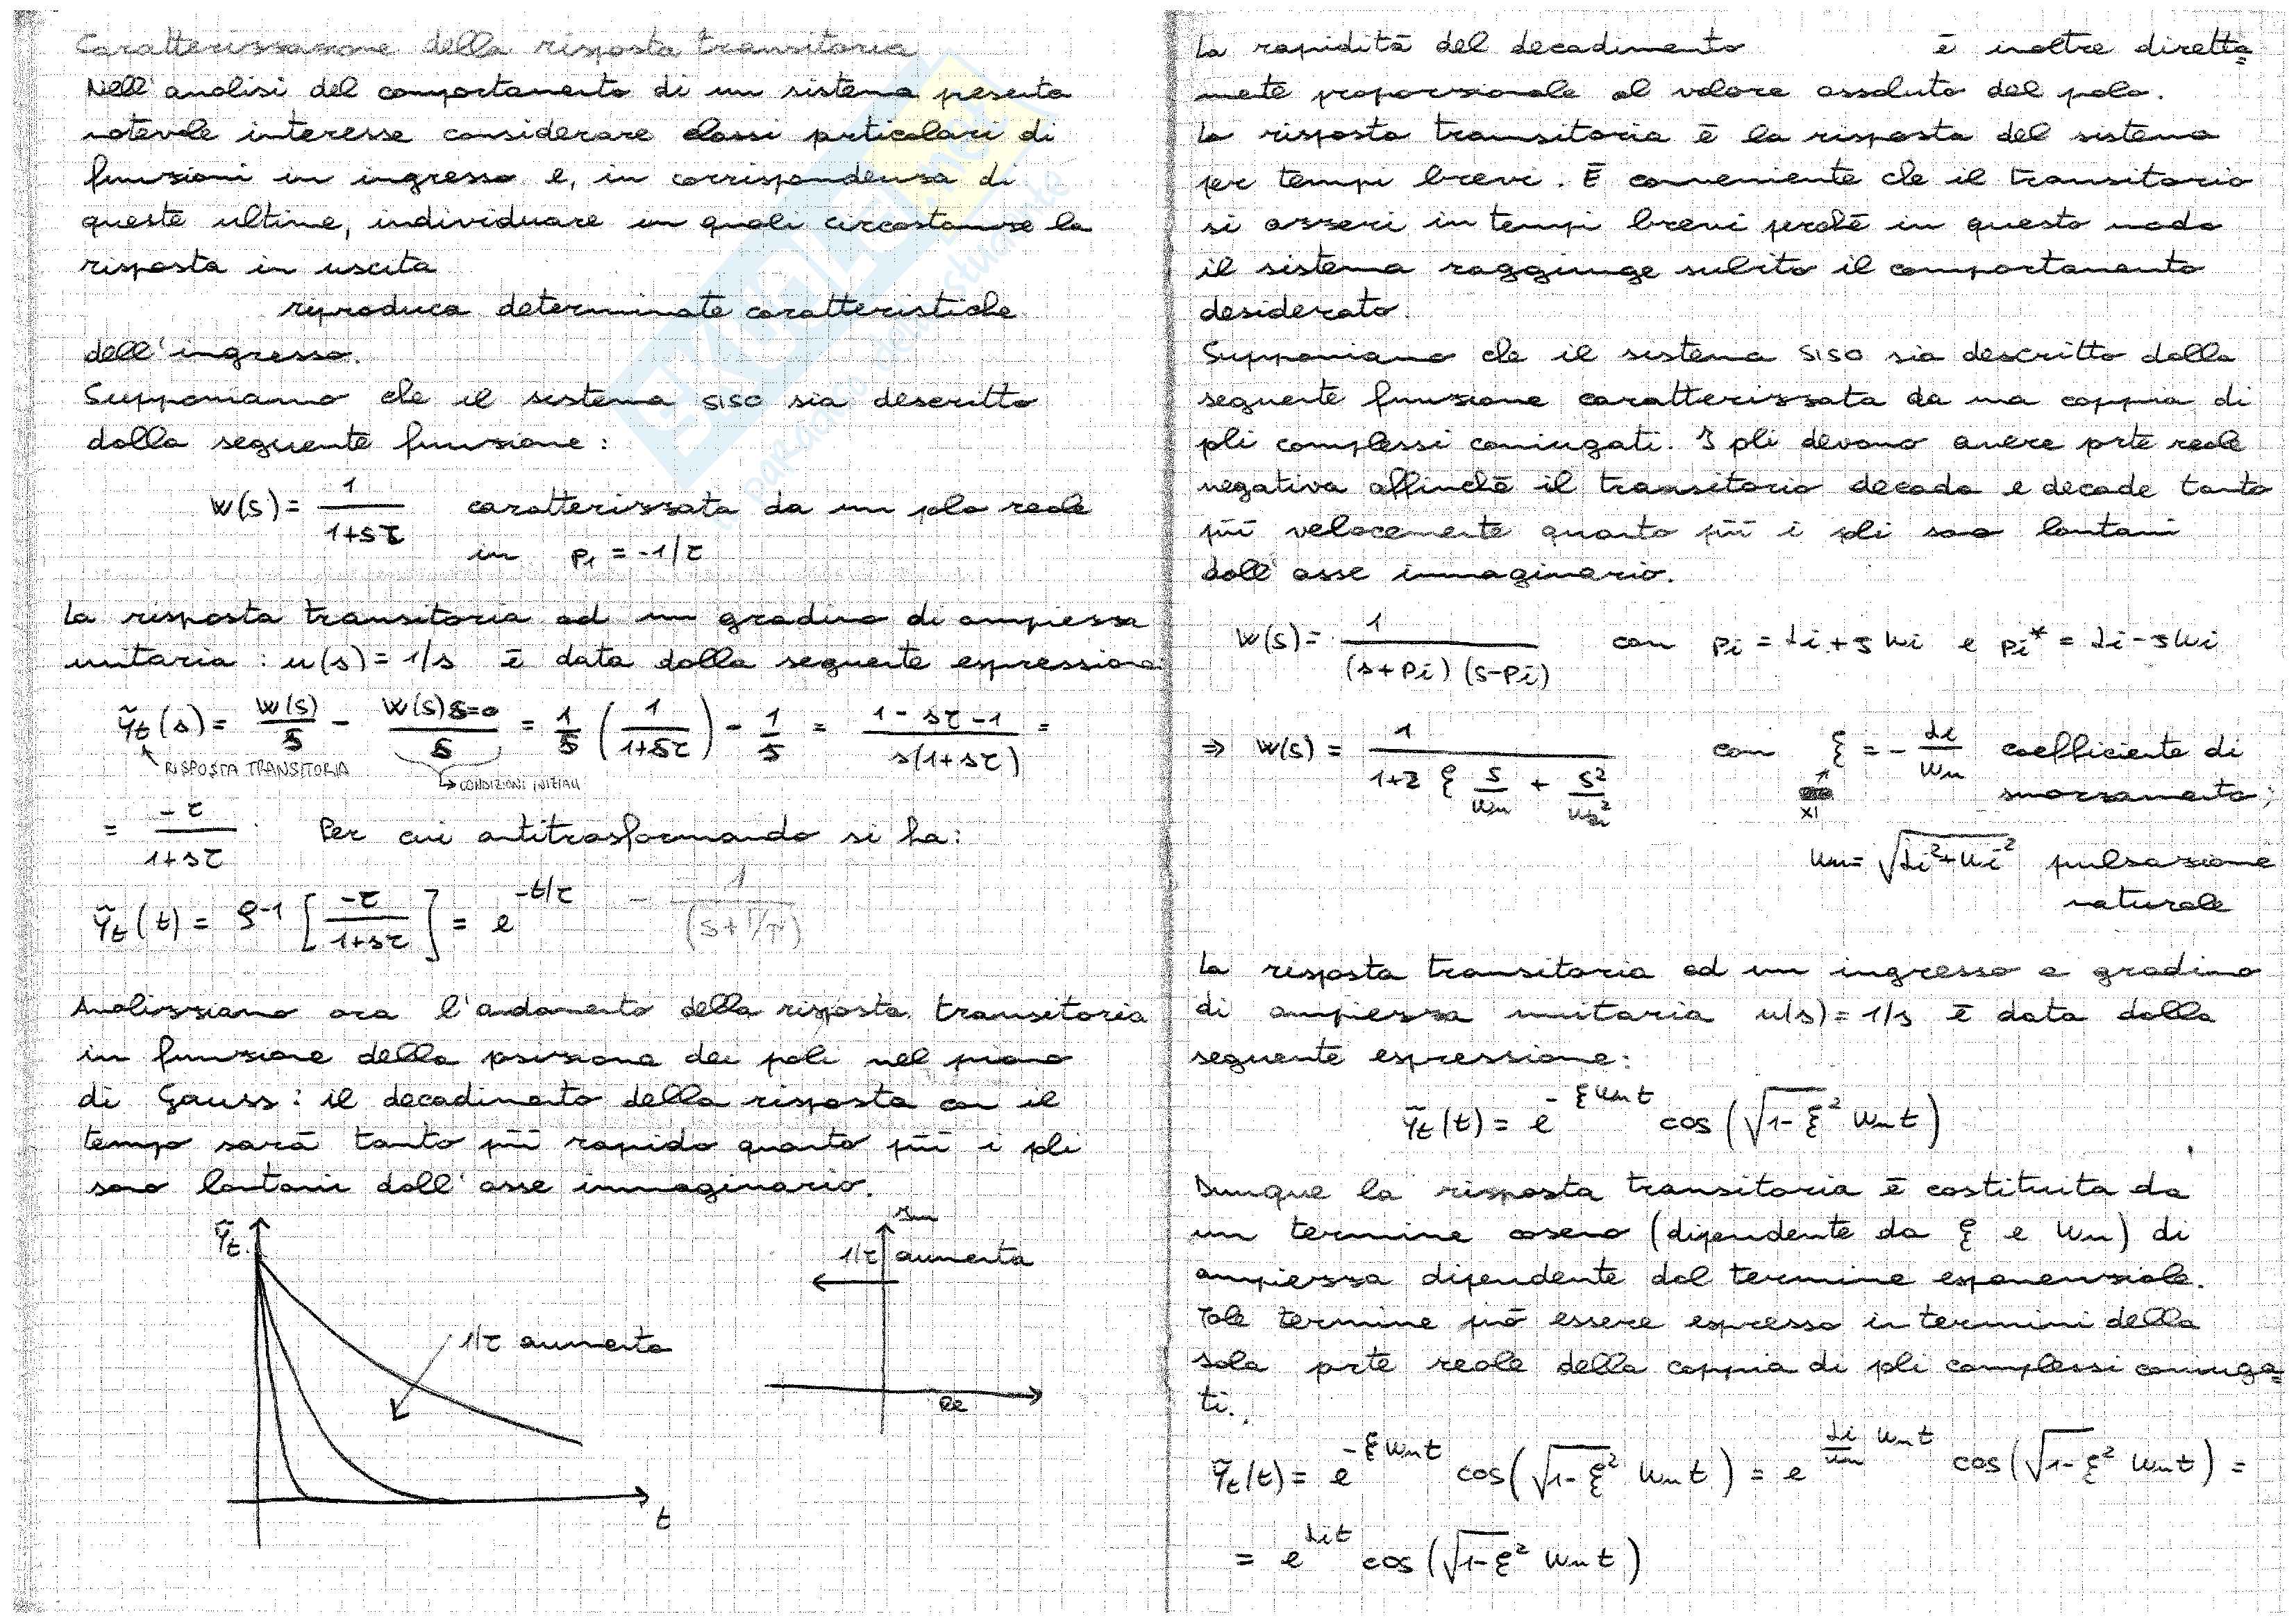 Caratterizzazione della risposta transitoria
Nell'analisi del comportamento di un sistema presenta
notevole interesse considerare classi prticolari di
funzioni in ingresso e, in corrispondenza di
queste ultime, individuare in quali circostanze la
risposta in uscita
riproduca determinate caratteristiche
dell'ingresso.
Supponiamo che il sistema SISO sia descritto
dalla seguente funzione:
W(s) = 1/(1+sτ) caratterizzata da un plo reale
in p₁ = -1/τ
La risposta transitoria ad un gradino di ampiezza
unitaria: u(s) = 1/s è data dalla seguente espressione
ỹt(s) = W(s)/s - W(s)s=0/s = 1/s (1/(1+sτ)) - 1/s = (1-sτ-1)/(s(1+sτ)) =
RISPOSTA TRANSITORIA
CONDIZIONI INIZIALI
= -τ/(1+sτ) Per cui antitrasformando si ha:
ỹt(t) = L⁻¹ [-τ/(1+sτ)] = e^(-t/τ) - 1/(s+1/τ)
Analizziamo ora l'andamento della risposta transitoria
in funzione della posizione dei poli nel piano
di Gauss: il decadimento della risposta con il
tempo sarà tanto più rapido quanto più i pli
sono lontani dall'asse immaginario.
ỹt
1/τ aumenta
t
Im
1/τ aumenta
Re
La rapidità del decadimento è inoltre diretta=
mente proporzionale al valore assoluto del polo.
La risposta transitoria è la risposta del sistema
per tempi brevi. È conveniente che il transitorio
si azzeri in tempi brevi perchè in questo modo
il sistema raggiunge subito il comportamento
desiderato.
Supponiamo che il sistema SISO sia descritto dalla
seguente funzione caratterizzata da una coppia di
pli complessi coniugati. I pli devono avere prte reale
negativa affinchè il transitorio decada e decade tanto
più velocemente quanto più i pli sono lontani
dall'asse immaginario.
W(s) = 1/((s+pi)(s-pi)) con pi = αi + jωi e pi* = αi - jωi
⇒ W(s) = 1/(1+2 ξ s/ωn + s²/ωn²) con ξ = -αi/ωn coefficiente di
smorzamento;
XI
ωn = √(αi²+ωi²) pulsazione
naturale
La risposta transitoria ad un ingresso a gradino
di ampiezza unitaria u(s) = 1/s è data dalla
seguente espressione:
ỹt(t) = e^(-ξωnt) cos(√(1-ξ²) ωnt)
Dunque la risposta transitoria è costituita da
un termine coseno (dipendente da ξ e ωn) di
ampiezza dipendente dal termine esponenziale.
Tale termine può essere espresso in termini della
sola prte reale della coppia di pli complessi coniuga=
ti.
ỹt(t) = e^(-ξωnt) cos(√(1-ξ²) ωnt) = e^(αi/ωn ωnt) cos(√(1-ξ²) ωnt) =
= e^(αit) cos(√(1-ξ²) ωnt)